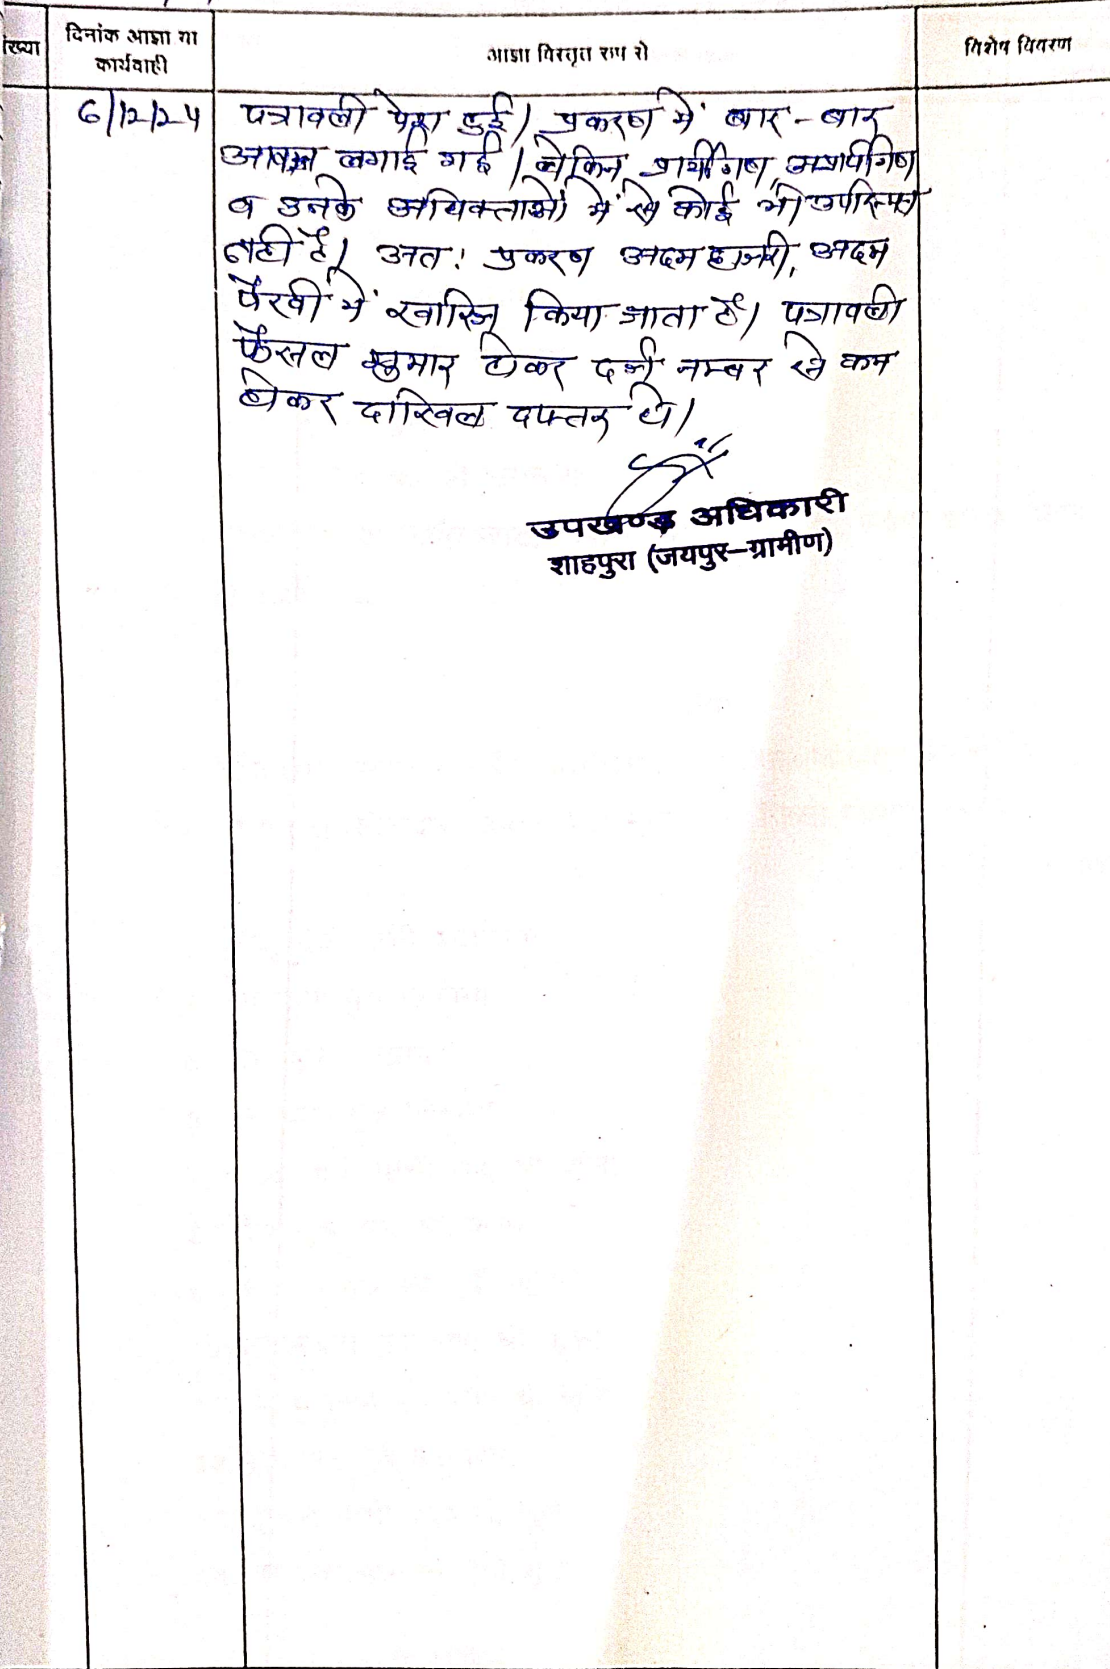 दिनांक आज्ञा या
कार्यवाही
आज्ञा विस्तृत रूप से
विशेष विवरण
6/12/24
पत्रावली पेश हुई। प्रकरण में बार-बार
आवाज लगाई गई। लेकिन प्रार्थीगण, अप्रार्थीगण
व उनके अधिवक्ताओं में से कोई भी उपस्थित
नहीं है। अतः प्रकरण अदम हाजरी, अदम
पैरवी में खारिज किया जाता है। पत्रावली
फैसल शुमार होकर दर्ज नम्बर से कम
होकर दाखिल दफ्तर हो।
उपखण्ड अधिकारी
शाहपुरा (जयपुर-ग्रामीण)